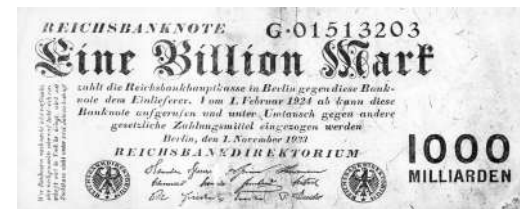 REICHSBANKNOTE G·01513203
Eine Billion Mark
zahlt die Reichsbankhauptkasse in Berlin gegen diese Bank-
note dem Einlieferer. Vom 1. Februar 1924 ab kann diese
Banknote aufgerufen und unter Umtausch gegen andere
gesetzliche Zahlungsmittel eingezogen werden
Berlin, den 1. November 1923
REICHSBANKDIREKTORIUM
1000
MILLIARDEN